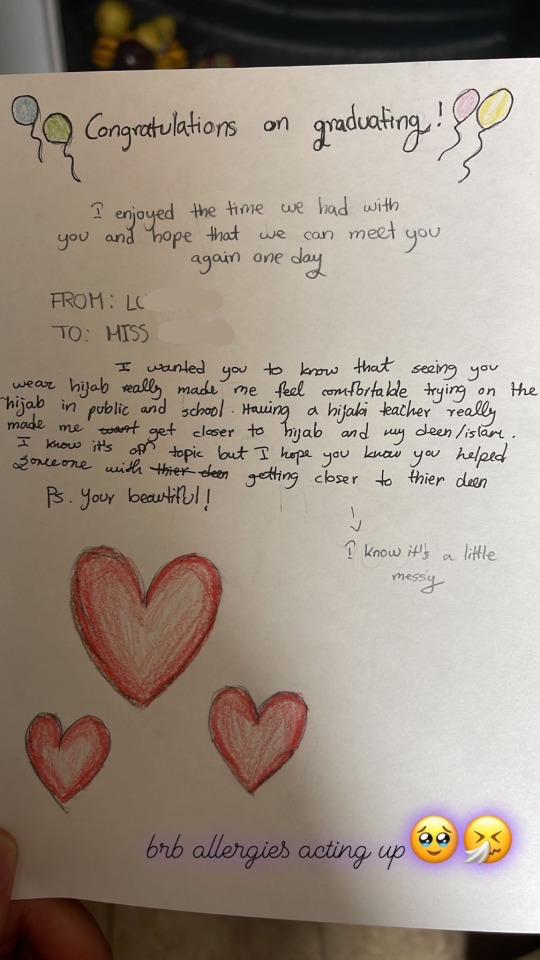 Congratulations on graduating!
I enjoyed the time we had with
you and hope that we can meet you
again one day
FROM: LC
TO: MISS
I wanted you to know that seeing you
wear hijab really made me feel comfortable trying on the
hijab in public and school. Having a hijabi teacher really
made me want get closer to hijab and my deen/islam.
I know it's off topic but I hope you know you helped
someone with thier deen getting closer to thier deen
Ps. Your beautiful!
I know it's a little
messy
brb allergies acting up